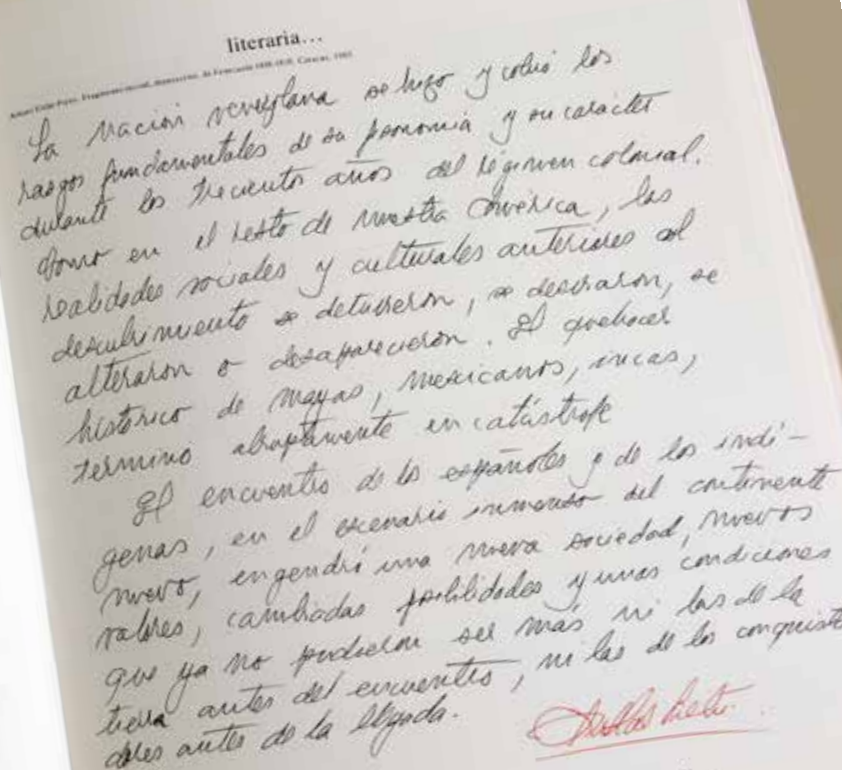 literaria...
Arturo Uslar Pietri. Fragmento inicial, manuscrito, de Venezuela 1830-1935. Caracas, 1992
La Nación venezolana se hizo y cobró los
rasgos fundamentales de su fisonomía y su carácter
durante los trecientos años del régimen colonial.
Como en el resto de nuestra América, las
realidades sociales y culturales anteriores al
descubrimiento se detuvieron, se desviaron, se
alteraron o desaparecieron. El quehacer
histórico de mayas, mexicanos, incas,
termino abruptamente en catástrofe
El encuentro de los españoles y de los indí-
genas, en el escenario inmenso del continente
nuevo, engendró una nueva sociedad, nuevos
valores, cambiadas posibilidades y unas condiciones
que ya no pudieron ser más ni las de la
tierra antes del encuentro, ni las de los conquista
dores antes de la llegada.